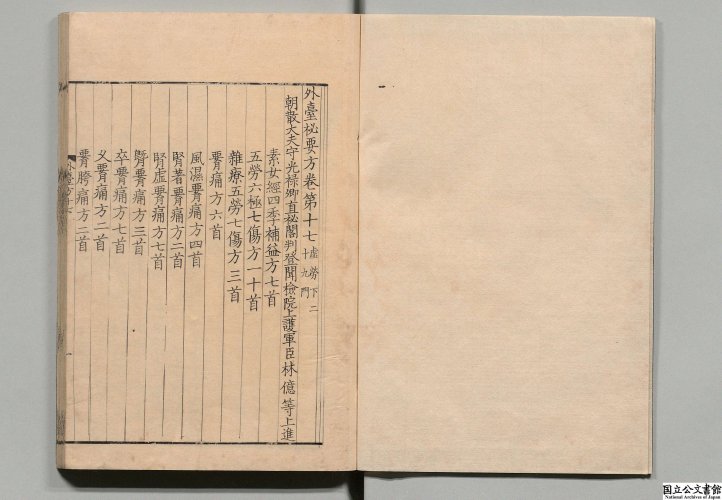 外臺秘要方卷第十七 虛勞下二十九門
朝散大夫守光祿卿直祕閣判登聞檢院上護軍臣林億等上進
素女經四季補益方七首
五勞六極七傷方一十首
雜療五勞七傷方三首
腎痛方六首
風濕腎痛方四首
腎著腎痛方二首
腎虛腎痛方七首
腎痛方三首
卒腎痛方七首
久腎痛方二首
腎胯痛方二首
国立公文書館
National Archives of Japan